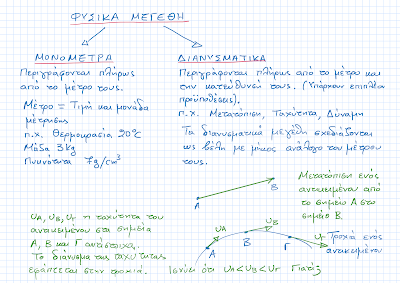 ΦΥΣΙΚΑ ΜΕΓΕΘΗ
ΜΟΝΟΜΕΤΡΑ
Περιγράφονται πλήρως
από το μέτρο τους.
Μέτρο = Τιμή και μονάδα
μέτρησης
π.χ. Θερμοκρασία 20°C
Μάζα 3kg
Πυκνότητα 7g/cm³
ΔΙΑΝΥΣΜΑΤΙΚΑ
Περιγράφονται πλήρως από το μέτρο και
την κατεύθυνσή τους. (Υπάρχουν επιπλέον
προϋποθέσεις).
π.χ. Μετατόπιση, Ταχύτητα, Δύναμη
Τα διανυσματικά μεγέθη σχεδιάζονται
ως βέλη με μήκος ανάλογο του μέτρου
τους.
Α
Β
Μετατόπιση ενός
αντικειμένου από
το σημείο Α στο
σημείο Β.
υΑ, υΒ, υΓ η ταχύτητα του
αντικειμένου στα σημεία
Α, Β και Γ αντίστοιχα.
Το διάνυσμα της ταχύτητας
εφάπτεται στην τροχιά.
υΑ
υΒ
υΓ
Α
Β
Γ
Τροχιά ενός
αντικειμένου
Ισχύει ότι υΑ<υΒ<υΓ Γιατί;